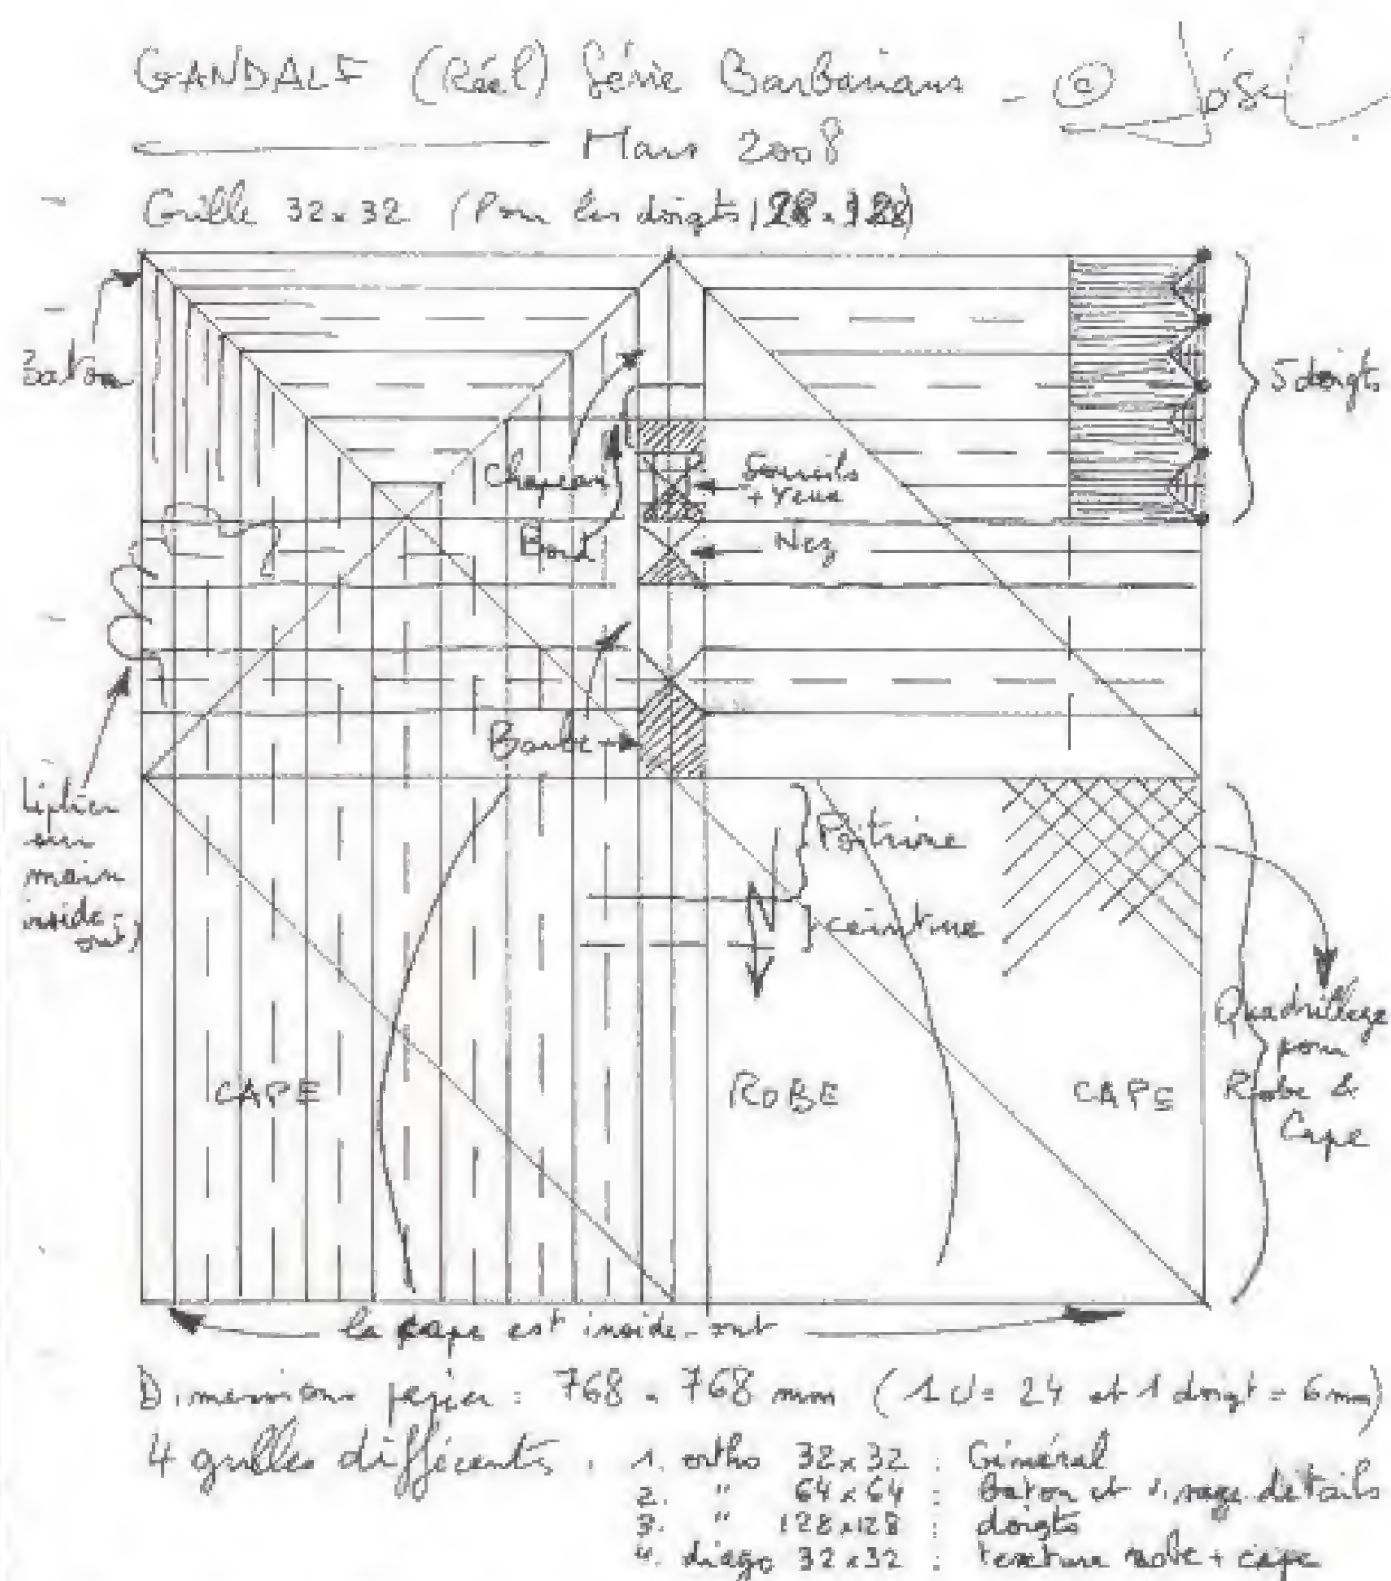 GANDALF (Réel) Série Barbarians - ©
Mars 2008
Grille 32x32 (Pour les doigts 128x128)
Baton
5 doigts
Chapeau
Sourcils
+ Yeux
Bord
Nez
Barbe
main
inside-
out)
Poitrine
ceinture
Quadrillage
pour
Robe &
Cape
CAPE
ROBE
CAPE
la cape est inside-out
Dimensions papier : 768 x 768 mm (1 U = 24 et 1 doigt = 6mm)
4 grilles différentes : 1. ortho 32x32 : Général
2. " 64x64 : Baton et visage détails
3. " 128x128 : doigts
4. diago 32x32 : texture robe + cape